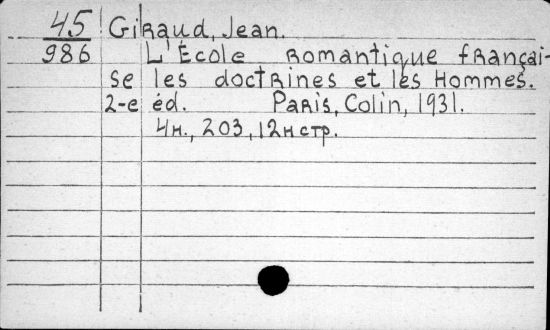 45 Giraud, Jean.
986 L'École romantique françai-
se les doctrines et les Hommes.
2-e éd. Paris, Colin, 1931.
4н., 203, 12н стр.